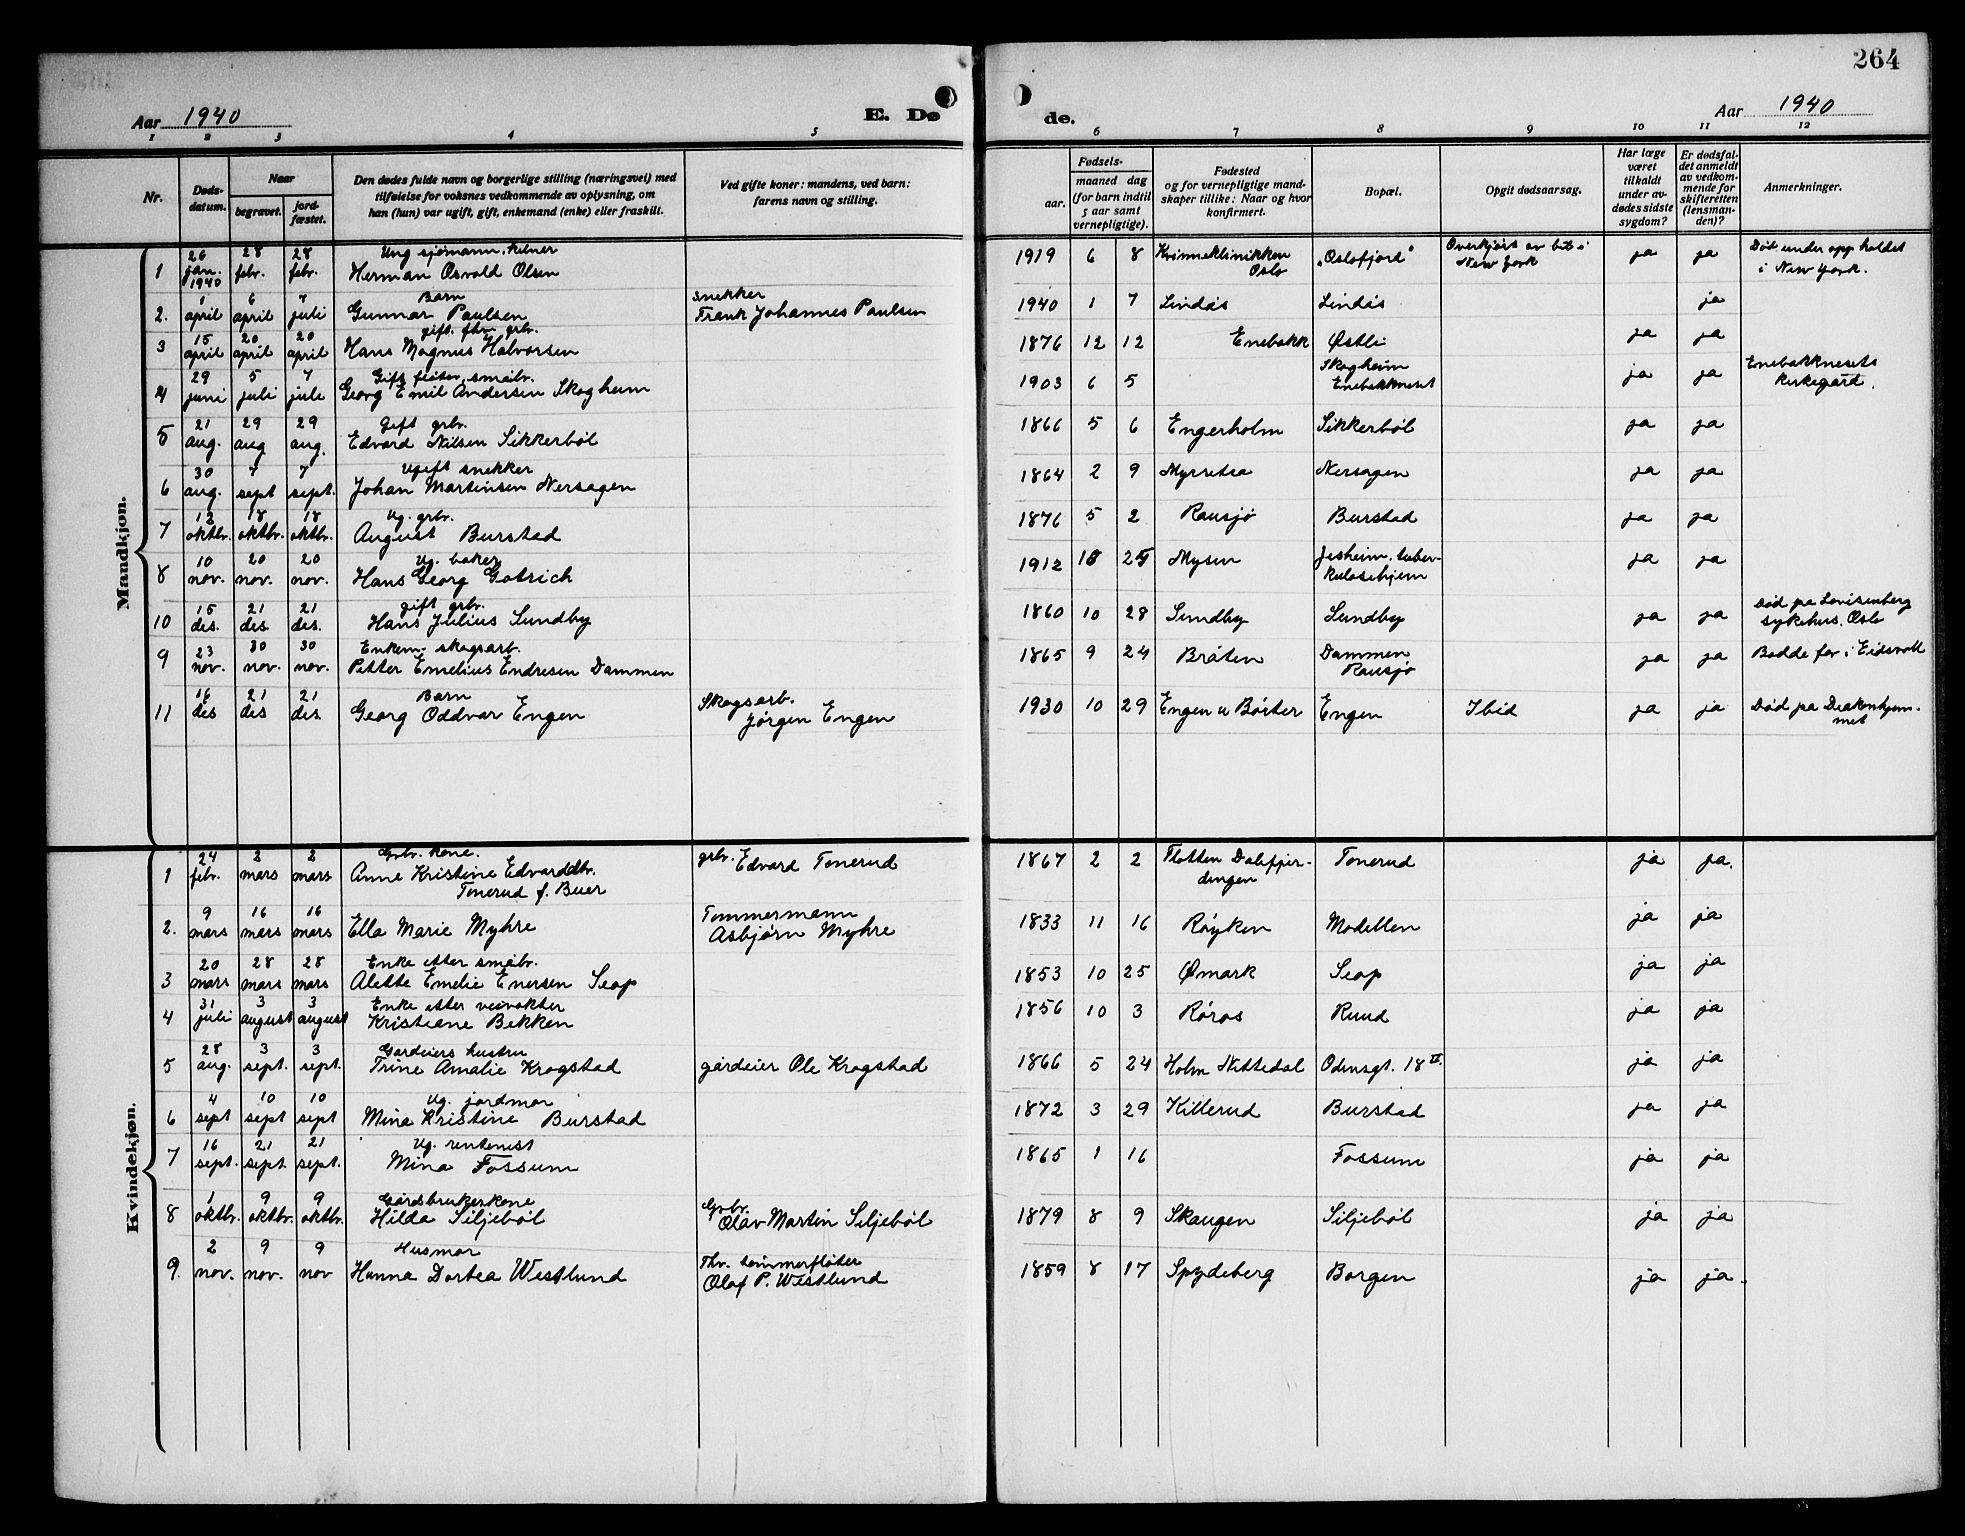 264
Aar 1940
E. Dø
de.
Aar 1940
1 2 3 4 5 6 7 8 9 10 11 12
Nr.
Døds-
datum.
Naar
begravet.
jord-
fæstet.
Den dødes fulde navn og borgerlige stilling (næringsvei) med
tilføielse for voksnes vedkommende av oplysning, om
han (hun) var ugift, gift, enkemand (enke) eller fraskilt.
Ved gifte koner: mandens, ved barn:
farens navn og stilling.
Fødsels-
aar.
maaned dag
(for barn indtil
5 aar samt
vernepligtige).
Fødested
og for vernepligtige mand-
skaper tillike: Naar og hvor
konfirmert.
Bopæl.
Opgit dødsaarsag.
Har læge
været
tilkaldt
under av-
dødes sidste
sygdom?
Er dødsfal-
det anmeldt
av vedkom-
mende for
skifteretten
(lensman-
den)?
Anmerkninger.
Mandkjøn.
26 28 28 Ung sjømann, kelner
1 jan. 1940 febr. febr. Herman Osvald Olsen 1919 6 8 Kvinneklinikken Oslo "Oslofjord" Overkjørt av bil i New York ja ja Død under opp holdet i New York.
1 6 7 Barn snekker
2. april april juli Gunnar Paulsen Frank Johannes Paulsen 1940 1 7 Lindås Lindås ja
15 20 20 gift. fhv. grbr.
3 april april april Hans Magnus Halvorsen 1876 12 12 Enebakk Østli ja ja
29 5 7 Gift fløter, småbr.
4 juni juli jule Georg Emil Andersen Skogheim 1903 6 5 Skogheim Enebakkneset ja ja Enebakknesets kirkegård.
21 29 29 Gift grbr.
5 aug. aug aug. Edvard Nilsen Sikkerbøl 1866 5 6 Engerholm Sikkerbøl ja ja
30 7 7 Ugift snekker
6 aug. sept sept. Johan Martinsen Nersagen 1864 2 9 Myrsetra Nersagen ja ja
12 18 18 Ug. grbr.
7 oktbr. oktbr. oktbr. August Burstad 1876 5 2 Rausjø Burstad ja ja
10 20 20 Ug. baker
8 nov. nov. nov. Hans Georg Gotrich 1912 25 Mysen Jesheim. tuber-kulosehjem ja ja
15 21 21 gift grbr.
10 des. des des. Hans Julius Sundby 1860 10 28 Sundby Sundby ja ja Død pa Lovisenberg sykehus. Oslo
23 30 30 Enkem. skogsarb.
9 nov. nov. nov. Petter Emelius Endresen Dammen 1865 9 24 Bråten Dammen Rausjø ja ja Bodde før i Eidsvoll
16 21 21 Barn Skogsarb.
11 des des des. Georg Oddvar Engen Jørgen Engen 1930 10 29 Engen u Børter Engen Ibid ja ja Død pa Deakonhjem-met
Kvindekjøn.
24 2 2 Grbr. kone.
1 febr. mars mars Anne Kristine Edvarddtr. Tonerud f. Buer grbr. Edvard Tonerud 1867 2 2 Flotten Dalefjer-dingen Tonerud ja ja.
9 16 16 Tommermann
2. mars mars mars Ella Marie Myhre Asbjørn Myhre 1833 11 16 Røyken Modellen ja ja
20 28 28 Enke etter småbr.
3 mars mars mars Alette Emelie Enersen Seop 1853 10 25 Ømark Seop ja ja
31 3 3 Enke etter veivokter
4 juli august august Kristiane Bekken 1856 10 3 Røros Ruud ja ja
28 3 3 Gardeiers hustru
5 aug. sept. sept. Trine Amalie Krogstad gårdeier Ole Krogstad 1866 5 24 Holm Nittedal Odinsgt. 18 II. ja ja
4 10 10 Ug. jordmor
6 sept sept sept. Mina Kristine Burstad 1872 3 29 Killerud Burstad ja ja
16 21 21 Ug. rentenist
7 sept. sept. sept. Mina Fossum 1865 1 16 Fossum ja ja
1 9 9 Gårdsbrukerkone Grbr.
8 oktbr. oktbr. oktbr. Hilda Siljebøl Olav Martin Siljebøl 1879 8 9 Skaugen Siljebøl ja ja
2 9 9 Husmor Fhv. tømmerfløter
9. nov. nov. nov Hanna Dortea Westlund Olaf P. Westlund 1859 8 17 Spydeberg Borgen ja ja.